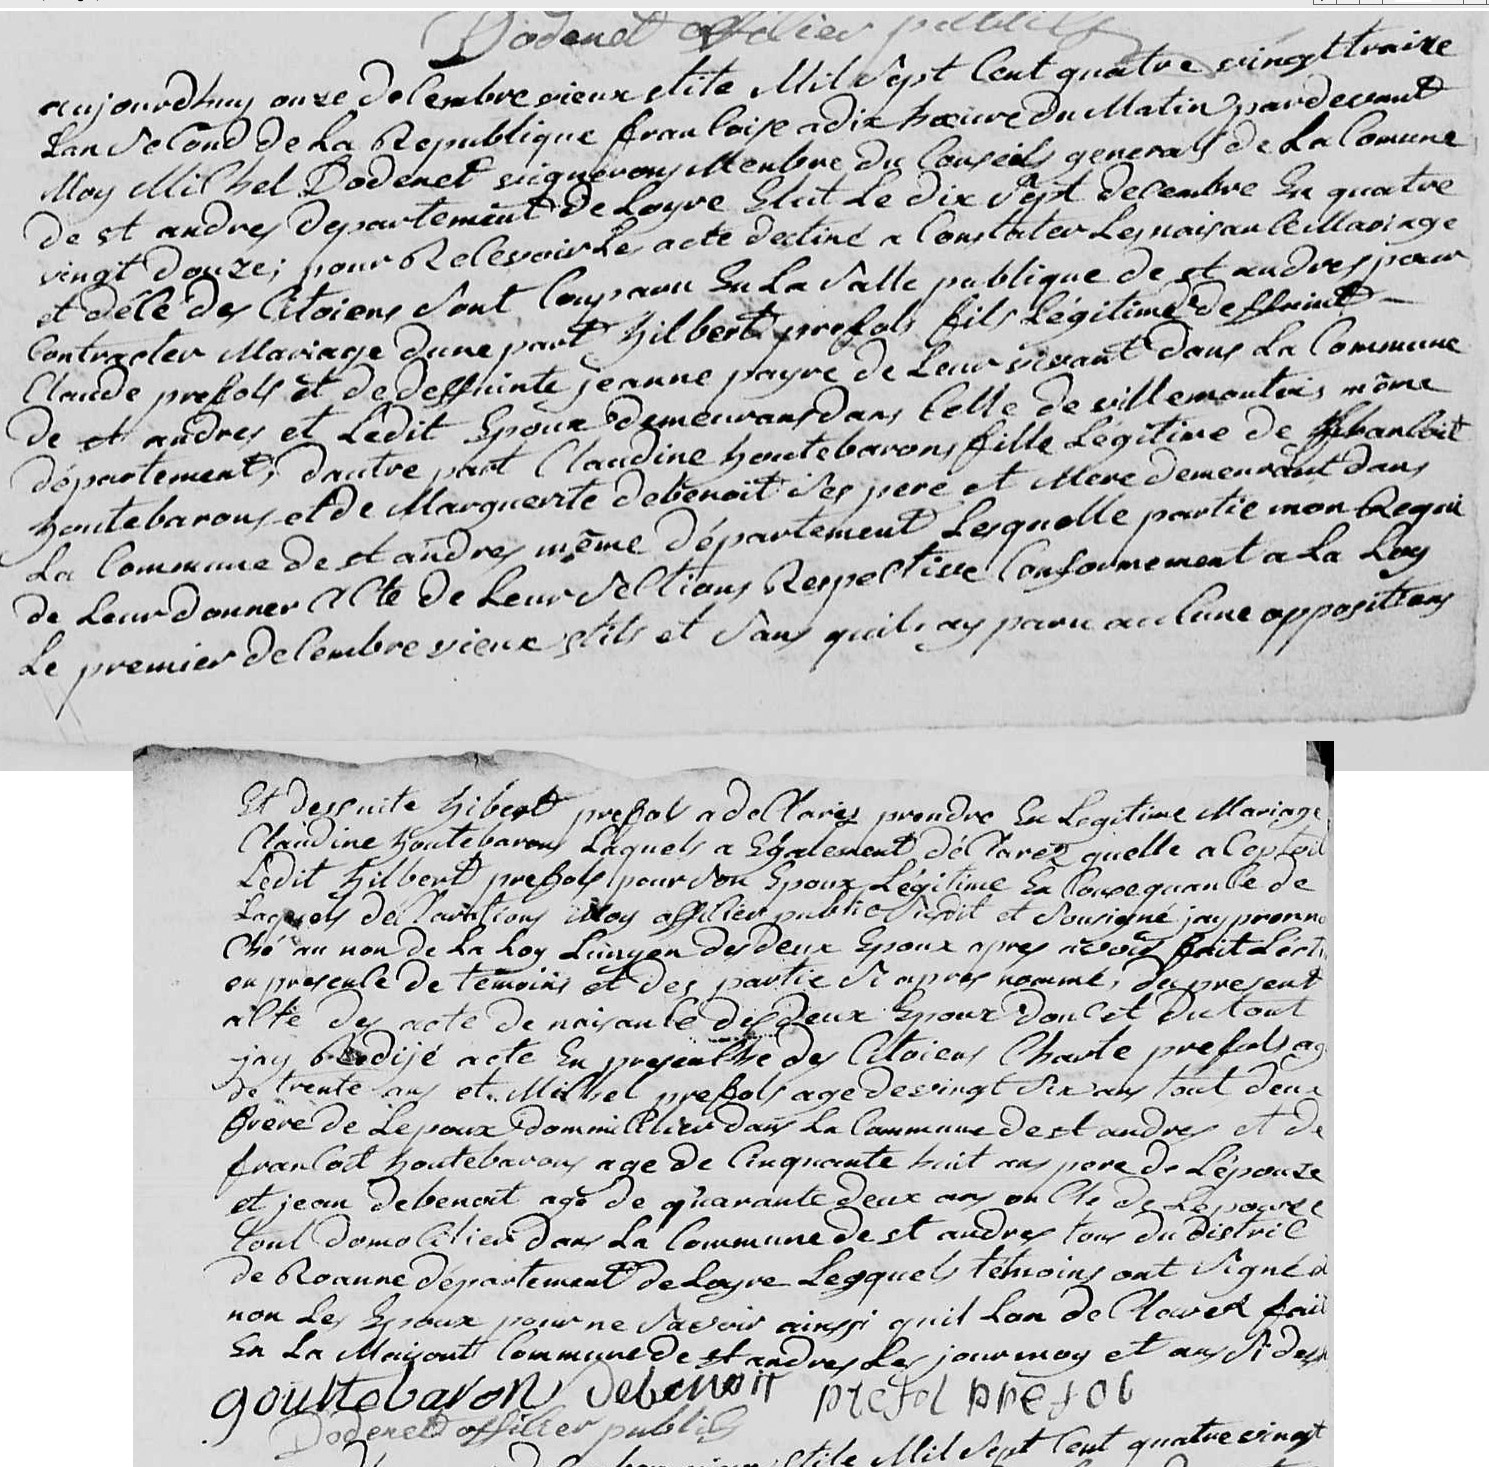 Dodenet officier publics
aujourdhuy onze decembre vieux stite Mil Sept Cent quatre vingt traize
Lan Second de La Republique francoise a dix hoeure du Matin pardevant
Moy Michel Dodenet vignerons Menbre du Conseils generals de La Comune
de st andres departement de Loyre Elut Le dix Sept decembre En quatre
vingt douze; pour Recevoir Les acte destiné a Constater Les naisance Mariage
et décé des Citoiens Sont Comparu En La Salle publique de st andres pour
Contracter Mariage dune part hilbert prefols fils Légitime deffuint
Claude prefols et de deffuinte jeanne payre de Leur vivant dans La Commune
de st andres et Ledit Epoux demeurans dans Celle de villemontois même
département; dautre part Claudine Goutebarons fille Légitime de francoit
Goutebarons et de Marguerite debenoit Ses pere et Mere demeurant dans
La Commune de st andres même département Lesquelle partie mon Requi
de Leur donner Acte de Leur Sections Respectisse Conformement a La Loy
Le premier decembre vieux stils et Sans quil y ay paru aucune oppositions
Et dessuite hibert prefol a declarez prendre En Legitime Mariage
Claudine Goutebarons Laquels a Egalement déClarez quelle aCeptoit
Ledit hilbert prefols pour Son Epoux Légitime En Consequance de
Laquels declarations Moy officier public Susdit et Sousigné jay pronon
Ché au non de La Loy Lunyon des deux Epoux apres avoir fait Lectu
en presence de temoins et des partie Si apres nommé, du present
acte des acte de naisance des deux Epoux donc et du tout
jay Redijé acte En presence des Citoiens Charle prefols ag
de trente ans et Michel prefols age de vingt Six ans tout deux
frere de Lepoux domicilier dans La Commune de st andres et de
francoit Goutebarons age de Cinquante huit ans pere de Lépouze
et jean debenoit agé de quarante deux ans oncle de Lepouze
tout domocilier dans La Commune de st andres tous du district
de Roanne département de Loyre Lesquels témoins ont Signé
non Les Epoux pour ne Savoir ainssi quil Lon de Clarer fait
En La Maisont Commune de st andres Les jour moy et ans Si des
gouttebaron debenoit prefol prefol
Dodenet officier publics
stile Mil Sept Cent quatre vingt